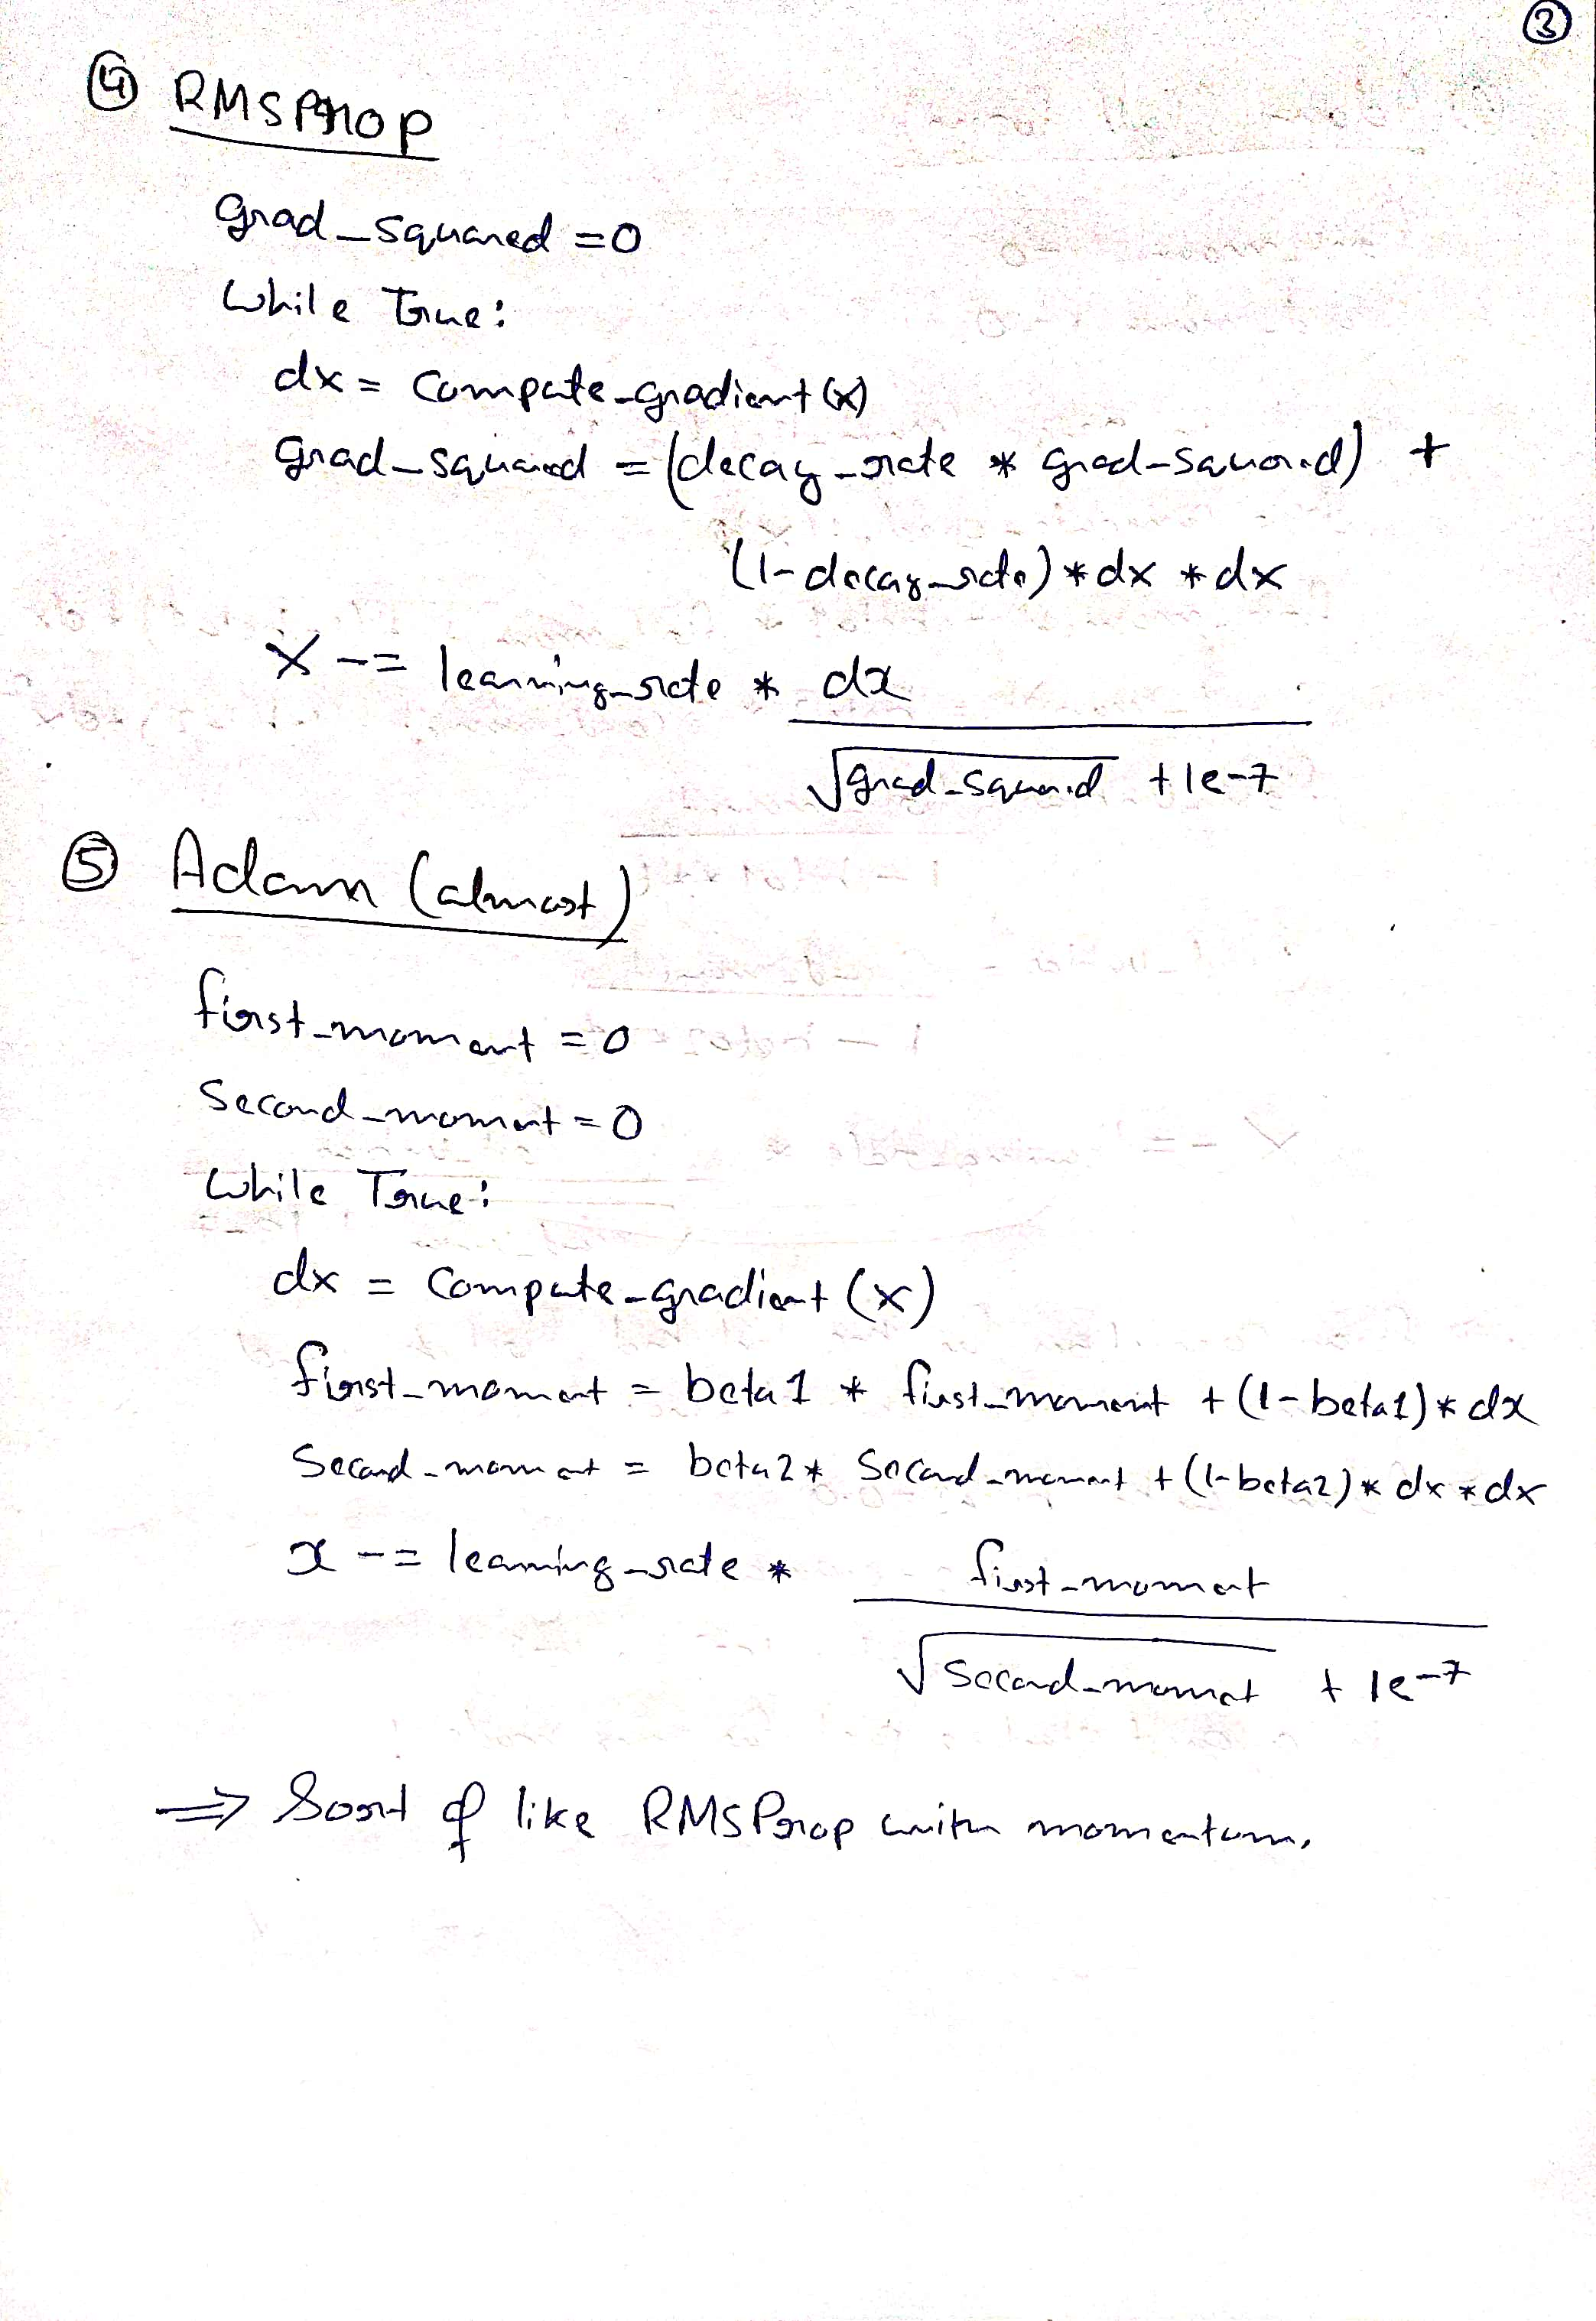 ③
④ RMSProp
grad_squared = 0
While True:
dx = Compute_gradient(x)
grad_squared = (decay_rate * grad_squared) +
(1-decay_rate) * dx * dx
x -= learning_rate * dx
√grad_squared + 1e-7
⑤ Adam (almost)
first_moment = 0
Second_moment = 0
While True:
dx = Compute_gradient (x)
first_moment = beta1 * first_moment + (1-beta1) * dx
Second_moment = beta2 * Second_moment + (1-beta2) * dx * dx
x -= learning_rate * first_moment
√Second_moment + 1e-7
⇒ Sort of like RMSProp with momentum.